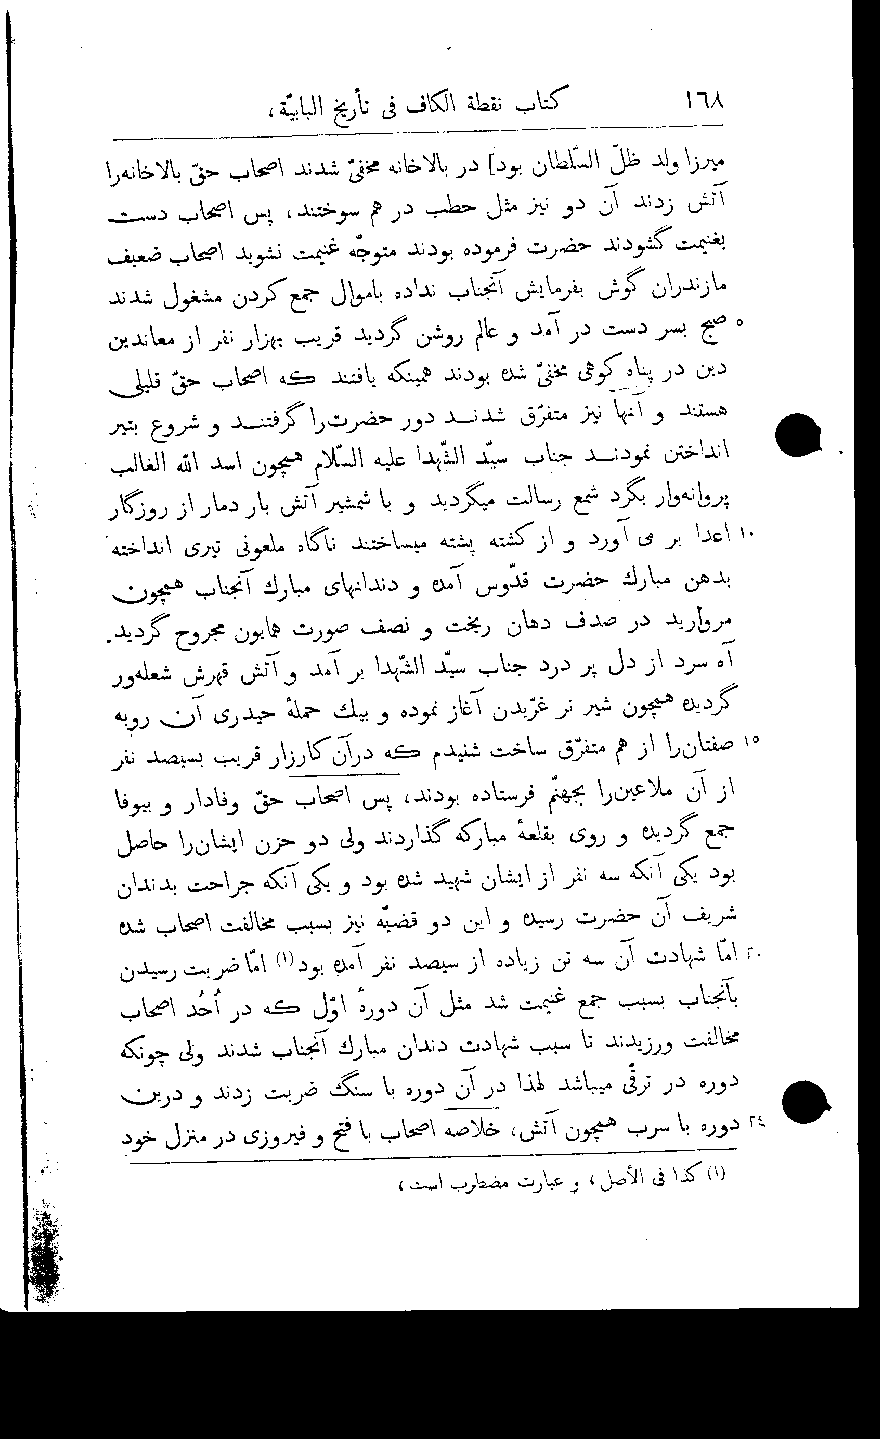 ١٦٨ كتاب نقطة الكاف فى تأريخ البابيّة،
ميرزا ولد ظلّ السّلطان بود] در بالاخانه مخفىّ شدند اصحاب حقّ بالاخانه‌را
آتش زدند آن دو نيز مثل حطب در هم سوختند، پس اصحاب دست
بغنيمت گشودند حضرت فرموده بودند متوجّه غنيمت نشويد اصحاب ضعيف
مازندران گوش بفرمايش آنجناب نداده باموال جمع كردن مشغول شدند
٥ صبح بسر دست در آمد و عالم روشن گرديد قريب بهزار نفر از معاندين
دين در پناه كوهى مخفىّ شده بودند همينكه يافتند كه اصحاب حقّ قليلى
هستند و آنها نيز متفرّق شدند دور حضرت‌را گرفتند و شروع بتير
انداختن نمودند جناب سيّد الشّهدا عليه السّلام همچون اسد الله الغالب
پروانه‌وار بگرد شمع رسالت ميگرديد و با شمشير آتش بار دمار از روزگار
١٠ اعدا بر مى آورد و از كشته پشته ميساختند ناگاه ملعونى تيرى انداخته
بدهن مبارك حضرت قدّوس آمده و دندانهاى مبارك آنجناب همچون
مرواريد در صدف دهان ريخت و نصف صورت همايون مجروح گرديد.
آه سرد از دل پر درد جناب سيّد الشّهدا بر آمد و آتش قهرش شعله‌ور
گرديده همچون شير نر غرّيدن آغاز نموده و بيك حملهٔ حيدرى آن روبه
١٥ صفتان‌را از هم متفرّق ساخت شنيدم كه درآن كارزار قريب بسيصد نفر
از آن ملاعين‌را بجهنّم فرستاده بودند، پس اصحاب حقّ وفادار و بيوفا
جمع گرديده و روى بقلعهٔ مباركه گذاردند ولى دو حزن ايشان‌را حاصل
بود يكى آنكه سه نفر از ايشان شهيد شده بود و يكى آنكه جراحت بدندان
شريف آن حضرت رسيده و اين دو قضيّه نيز بسبب مخالفت اصحاب شده
٢٠ امّا شهادت آن سه تن زياده از سيصد نفر آمده بود(١) امّا ضربت رسيدن
بآنجناب بسبب جمع غنيمت شد مثل آن دورهٔ اوّل كه در اُحُد اصحاب
مخالفت ورزيدند تا سبب شهادت دندان مبارك آنجناب شدند ولى چونكه
دوره در ترقّى ميباشد لهذا در آن دوره با سنگ ضربت زدند و درين
٢٤ دوره با سرب همچون آتش، خلاصه اصحاب با فتح و فيروزى در منزل خود
(١) كذا فى الأصل، و عبارت مضطرب است،